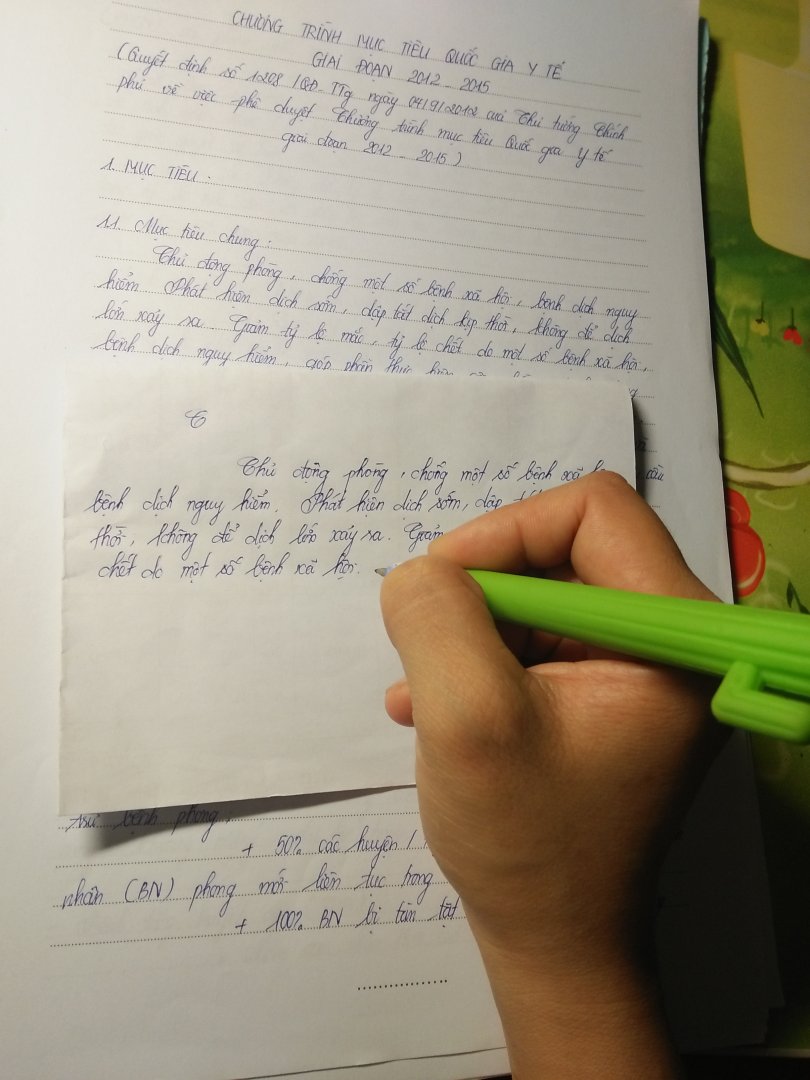 CHƯƠNG TRÌNH MỤC TIÊU QUỐC GIA Y TẾ
GIAI ĐOẠN 2012 - 2015
(Quyết định số 1208 /QĐ-TTg ngày 04/9/2012 của Thủ tướng Chính
phủ về việc phê duyệt Chương trình mục tiêu Quốc gia Y tế
giai đoạn 2012 - 2015)
1. MỤC TIÊU:
1.1. Mục tiêu chung:
Chủ động phòng, chống một số bệnh xã hội, bệnh dịch nguy
hiểm. Phát hiện dịch sớm, dập tắt dịch kịp thời, không để dịch
lớn xảy ra. Giảm tỷ lệ mắc, tỷ lệ chết do một số bệnh xã hội,
bệnh dịch nguy hiểm, góp phần thực hiện
C
Chủ động phòng, chống một số bệnh xã
bệnh dịch nguy hiểm. Phát hiện dịch sớm, dập
thời, không để dịch lớn xảy ra. Giảm
chết do một số bệnh xã hội.
trừ bệnh phong:
+ 50% các huyện /
nhân (BN) phong mới liên tục trong
+ 100% BN bị tàn tật